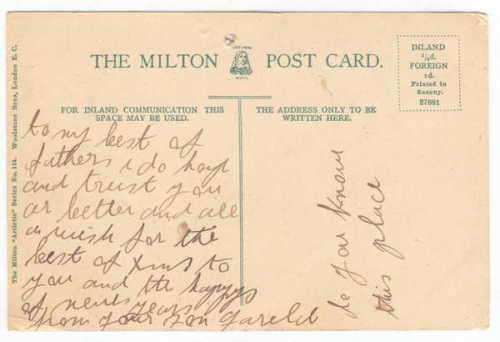 THE MILTON POST CARD.
INLAND
½d.
FOREIGN
1d.
Printed in
Saxony.
FOR INLAND COMMUNICATION THIS
SPACE MAY BE USED.
THE ADDRESS ONLY TO BE
WRITTEN HERE.
The Milton "Artlette" Series No. Woolstone Bros, London E.C.
to my best of
fathers i do hope
and trust you
ar better and all
a wish for the
best of Xmas to
you and the happy
of news years
from your son
do you know
this place